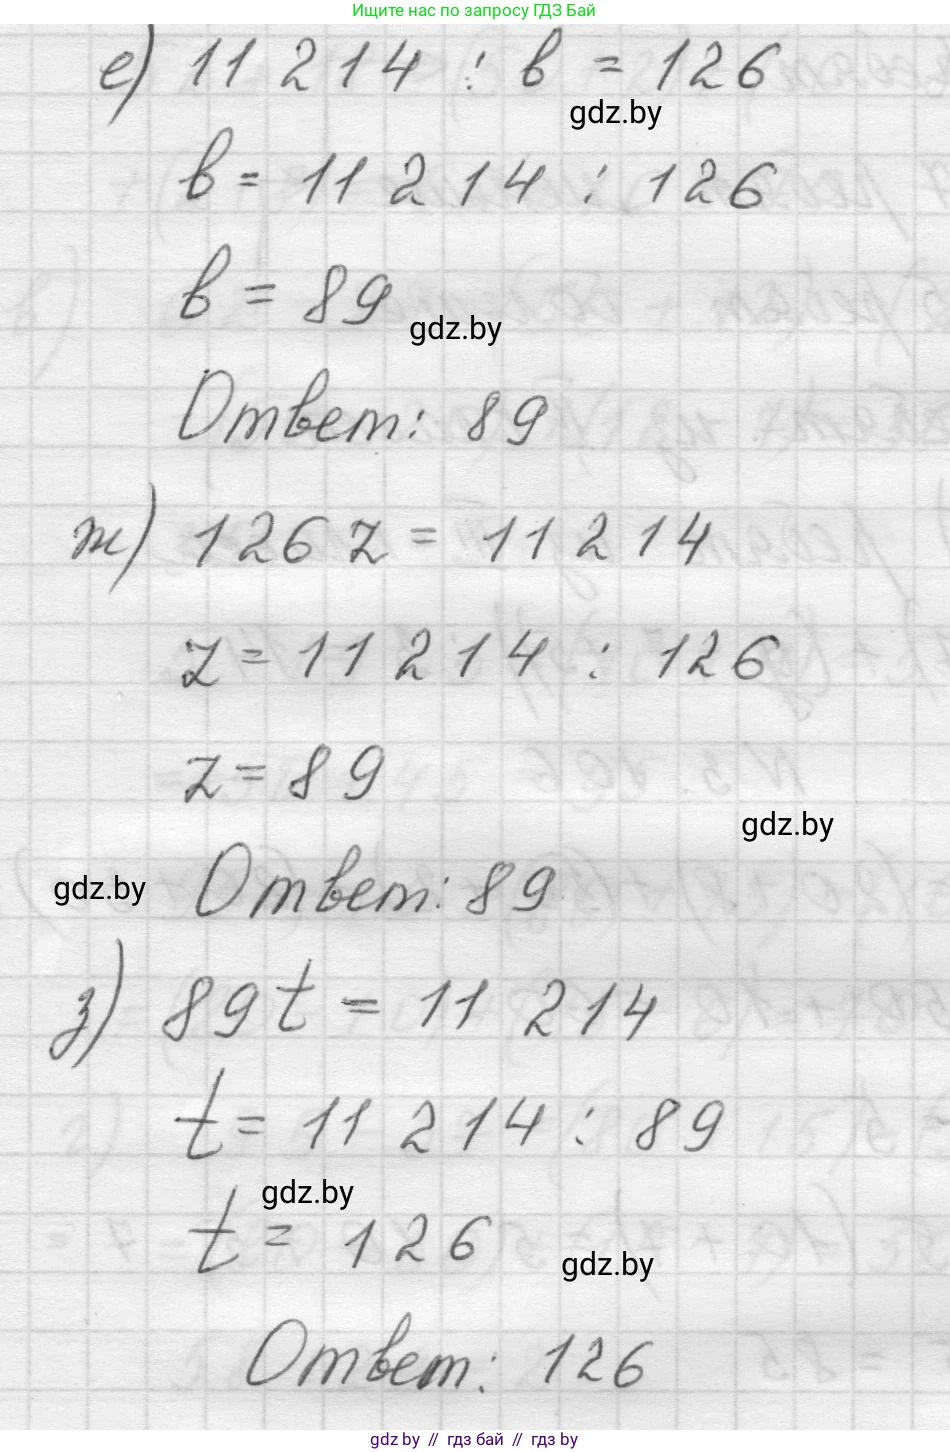 Ищите нас по запросу ГДЗ Бай
е) 11 214 : в = 126
gdz.by
в = 11 214 : 126
в = 89
gdz.by
Ответ: 89
ж) 126 z = 11 214
z = 11 214 : 126
z = 89
gdz.by
gdz.by
Ответ: 89
з) 89 t = 11 214
t = 11 214 : 89
gdz.by
t = 126
gdz.by
Ответ: 126
gdz by // гдз бай // gdz by